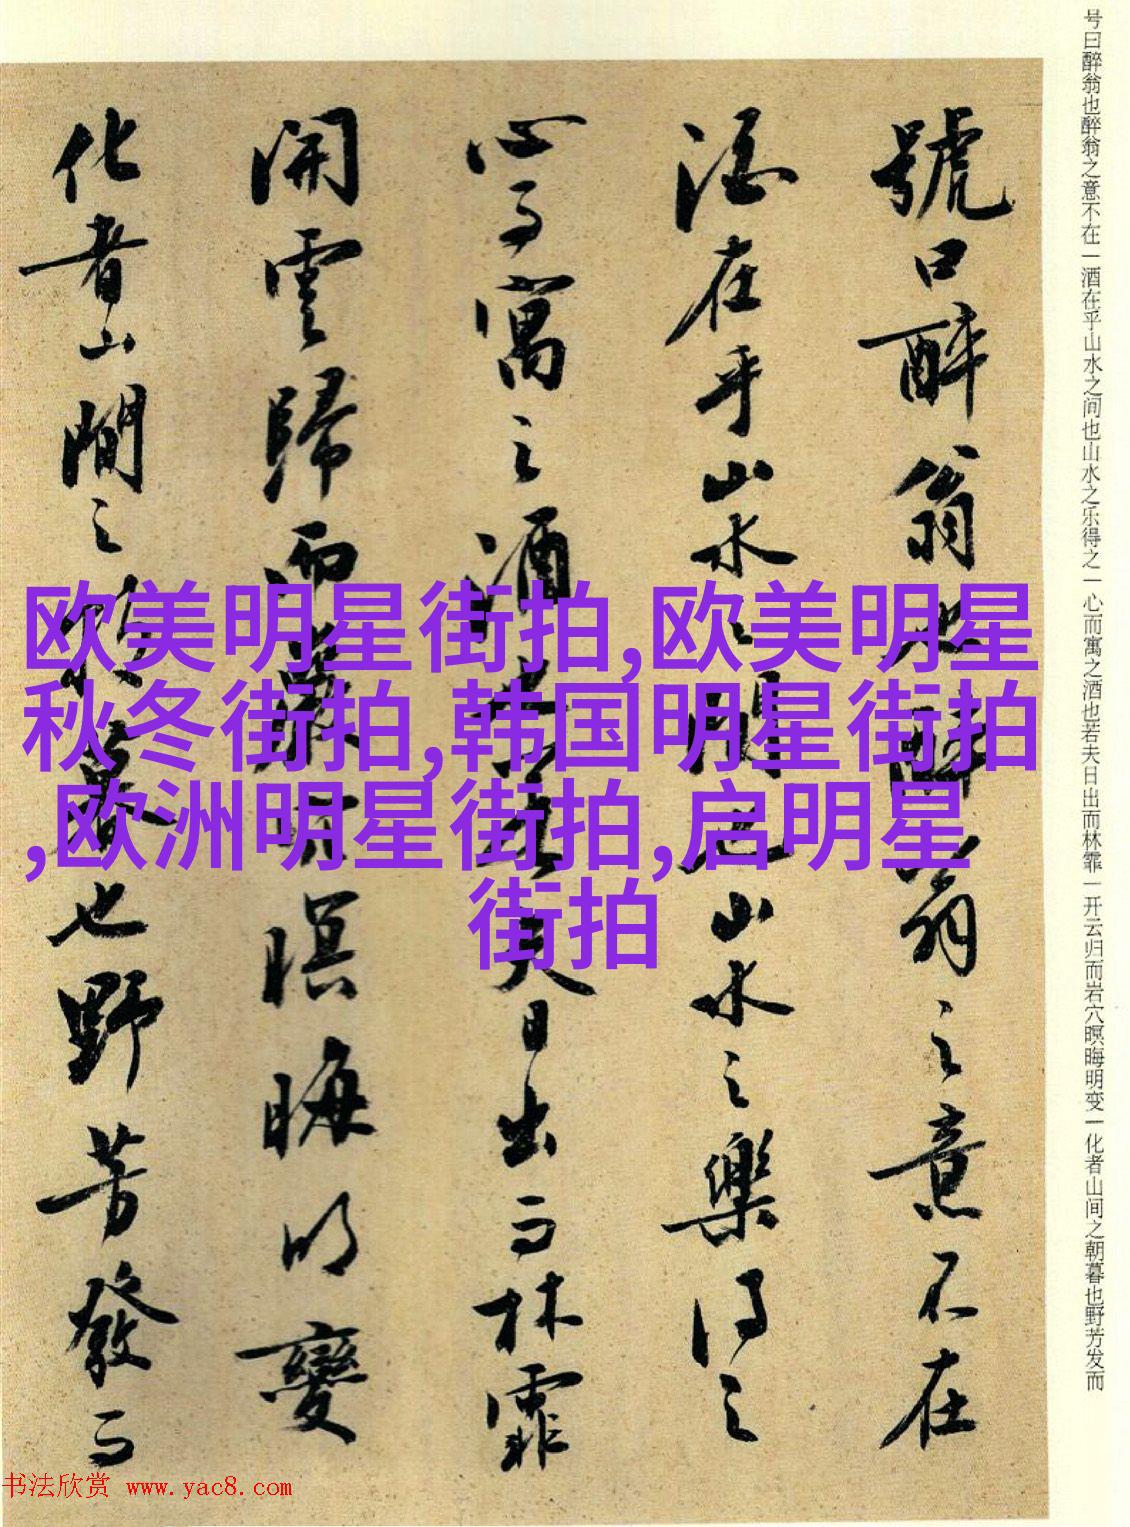 號曰醉翁也醉翁之意不在
酒在乎山水之間也山水之樂得之
心而寓之酒也若夫日出而林霏
開雲歸而巖穴暝晦明變
化者山間之朝暮也野芳發而
号曰醉翁也醉翁之意不在一酒在乎山水之间也山水之乐得之一心而寓之酒也若夫日出而林霏一开云归而岩穴暝晦明变一化者山间之朝暮也野芳发而
欧美明星街拍,欧美明星
秋冬街拍,韩国明星街拍
,欧洲明星街拍,启明星
街拍
书法欣赏 www.yac8.com